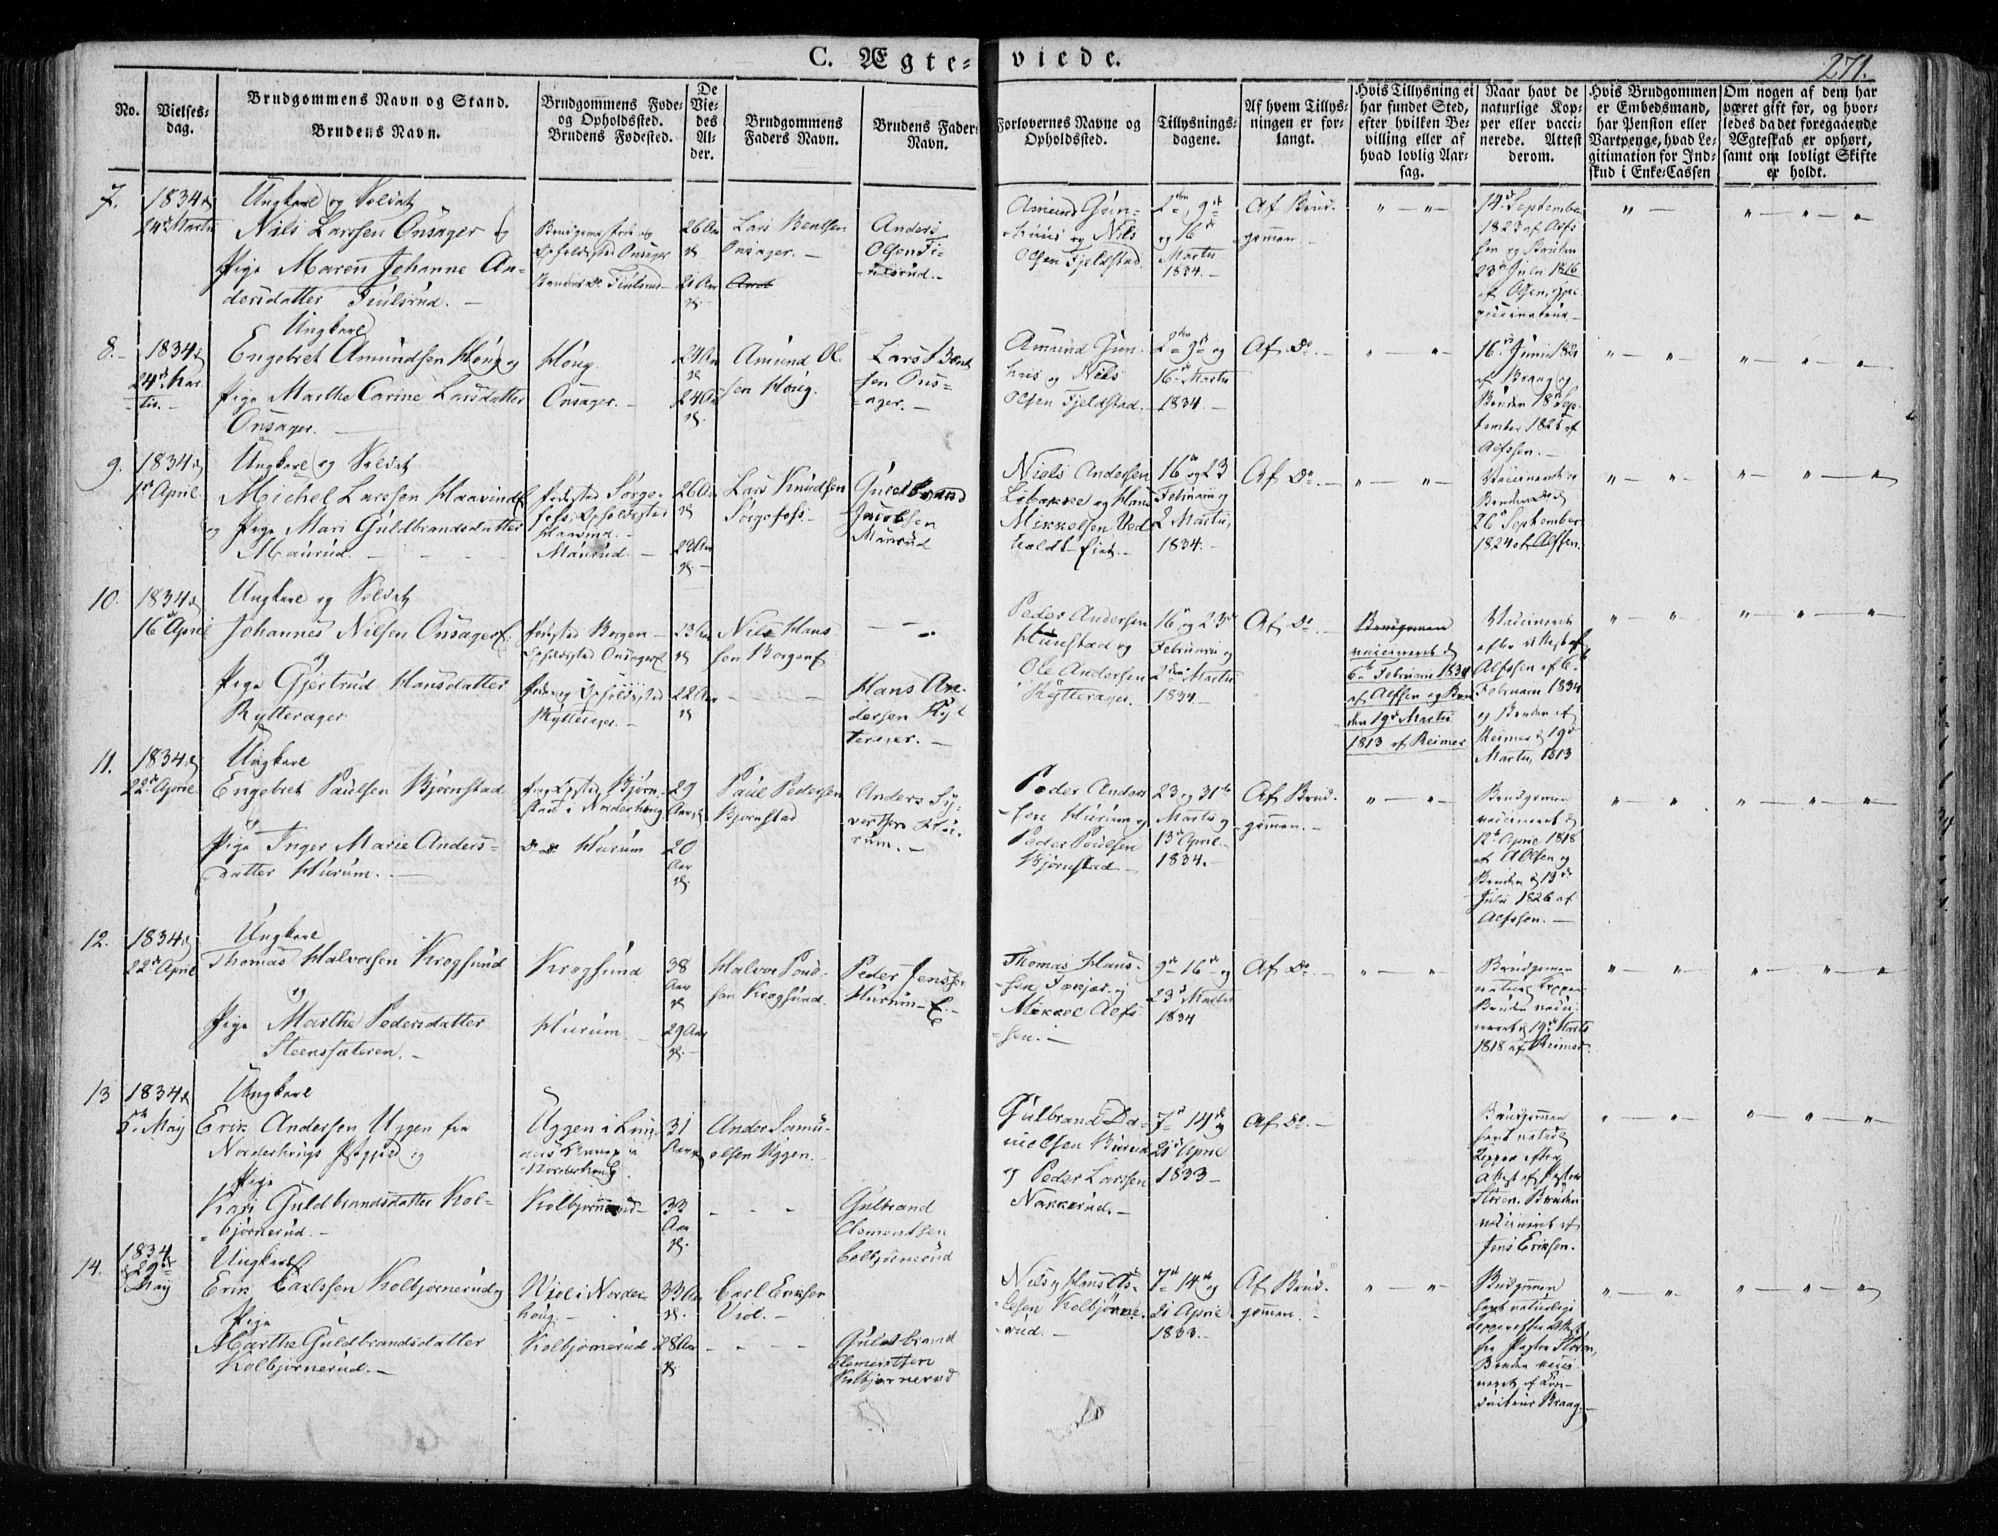 C. Ægte-viede.
271.
No.
Vielses-
dag.
Brudgommens Navn og Stand.
Brudens Navn.
Brudgommens Føde-
og Opholdssted.
Brudens Fødested.
De
Vie-
des
Al-
der.
Brudgommens
Faders Navn.
Brudens Faders
Navn.
Forlovernes Navne og
Opholdssted.
Tillysnings-
dagene.
Af hvem Tillys-
ningen er for-
langt.
Hvis Tillysning ei
har fundet Sted,
efter hvilken Be-
villing eller af
hvad lovlig Aar-
sag.
Naar havt de
naturlige Kop-
per eller vacci-
nerede. Attest
derom.
Hvis Brudgommen
er Embedsmand,
har Pension eller
Vartpenge, hvad Le-
gitimation for Ind-
skud i Enke-Cassen
Om nogen af dem har
været gift før, og hvor-
ledes da det foregaaende
Ægteskab er ophørt,
samt om lovligt Skifte
er holdt.
7.
1834 d
24de Martii
Ungkarl og Soldat
Nils Larssen Onsager og
Pige Maren Johanne An-
dersdatter
Opholdssted Onsager
26 Aar
21 Aar
Lars Bentsen
Onsager. —
Anders
Olsen
Amund Gun-
og Nils
Olsen Fjeldstad.
2den, 9de
og 16de
Martii
1834. —
Af Brud-
gommen.
14de September
1823 af Alfs-
sen og Bruden
23de Julii 1816
af Olsen,
8. —
1834 d
24de Mar-
tii. —
Ungkarl
Engebret Amundsen Houg og
Pige Marthe Carine Larsdatter
Onsager. —
Houg.
Onsager. —
24 Aar
24 Aar
Amund Ol-
sen Houg.
Lars Bent-
sen Ons-
ager. —
Amund Gun-
og Nils
Olsen Fjeldstad.
2den 9de og
16de Martii
1834. —
Af Do. —
16de Junii 1821
af Braag og
Bruden 18de Sep-
tember 1825 af
Alfssen. —
9.
1834 d
1ste April
Ungkarl og Soldat
Michel Larssen Haavind
og Pige Mari Guldbrandsdatter
Maurud —
Fødested Sørge-
foss, Opholdssted
Haavind. —
Maurud —
26 Aar
23 Aar
Lars Knudsen
Sørgefoss —
Guldbrand
Jacobsen
Maurud
Niels Andersen
og Hans
Mikkelsen Ved-
holdt
16de og 23
Februarii og
2 Martii,
1834. —
Af Do. —
Vaccineret og
Bruden d
26de September
1824 af Alfsen.
10.
1834 d
16de April
Ungkarl og Soldat
Johannes Nilsen Onsager
og
Pige Gjertrud Hansdatter
Rytterager
Fødested Borgen —
Opholdssted Onsager
Føde og Opholdssted
Rytterager. —
23 Aar
28 Aar
Nils Hans-
sen Borgen
Hans An-
dersen Ryt-
terager. —
Peder Andersen
og
Ole Andersen
Rytterager.
16de og 23de
Februarii og
2den Martii
1834. —
Af Do. —
Brudgommen
vaccineret d
6te Februarii 1834
af Alfsen og Bru-
den 19de Martii
1813 af Reimer
Vaccineret
efter Attest af
Alfsen af 6te
Februarii 1834
og Bruden af
Reimer d 19de
Martii, 1813
11.
1834 d
22de April
Ungkarl
Engebret Paulsen Bjørnstad
og
Pige Inger Marie Anders-
datter Hurum. —
Bjørn-
stad i Norderhoug
do do Hurum
29
Aar
20
Aar
Paul Pedersen
Bjørnstad
Anders Sy-
vertsen Hu-
rum. —
Peder Anders-
sen Hurum og
Peder Poulsen
Bjørnstad —
23 og 31te
Martii og
13de April —
1834. —
Af Brud-
gommen. —
Brudgommen
vaccineret d
12te April 1818
af Alfsen og
Bruden d 13de
Julii 1826 af
Alfssen. —
12.
1834 d
22de April
Ungkarl
Thomas Halvorsen Krogsund
og
Pige Marthe Pedersdatter
Steensæteren. —
Krogsund
Hurum
38
Aar
29 Aar
Halvor Poul-
sen Krogsund.
Peder Jenssen
Hurum —
Thomas Hans-
sen og
Mikkel Alfs-
sen. —
9de 16de og
23de Martii
1834
Af Do. —
Brudgommen
naturl. Kopper
Bruden vacci-
neret d 19de Marts
1818 af Reimer.
13
1834 d
5te May
Ungkarl
Erik Andersen Uggen fra
Norderhougs Præstegjeld og
Pige
Kari Guldbrandsdatter Kol-
bjørnerud. —
Uggen i
Annex i
Norderhoug
Kolbjørnerud —
31
Aar
33
Aar
Anders Samu-
elsen Uggen.
Gulbrand
Clementsen
Colbjørnerud
Gulbrand Da-
nielsen
og Peder Larssen
Nakkerud. —
7de 14de og
21de April
1833 —
Af Do. —
Brudgommen
havt naturl.
Kopper efter
Attest af Pastor
Støren. Bruden
vaccineret af
Jens Eriksen.
14.
1834
d 29de
May
Ungkarl
Erik Carlssen Kolbjørnerud og
Pige
Marthe Guldbrandsdatter
Kolbjørnerud. —
i Norder-
houg. —
Kolbjørnerud
33 Aar
28 Aar
Carl Eriksen
Guldbrand
Clementsen
Kolbjørnerud
Nils og Hans
Kolbjørne-
rud. —
7de 14de og
21 April
1833. —
Af Brud-
gommen.
Brudgommen
havt naturlige
Kopper efter Attest
fra Pastor Støren,
Bruden vacci-
neret af
Braag. —